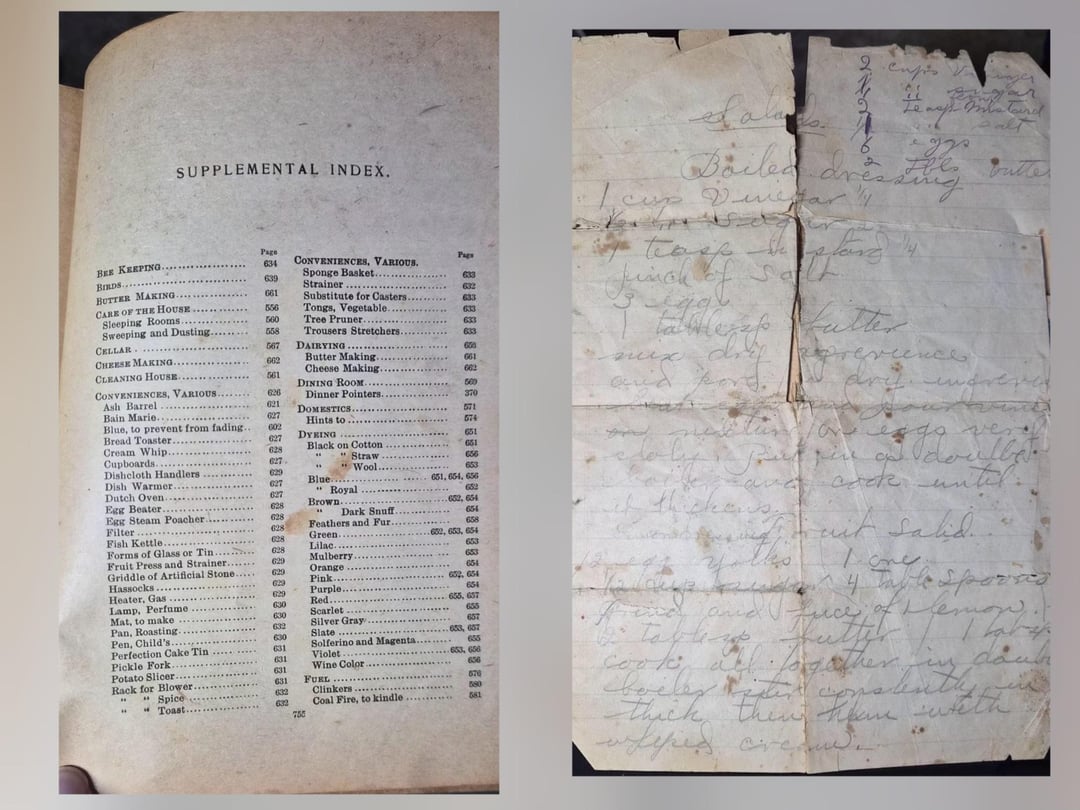 SUPPLEMENTAL INDEX.
Page
BEE KEEPING 634
BIRDS 639
BUTTER MAKING 661
CARE OF THE HOUSE 556
Sleeping Rooms 560
Sweeping and Dusting 558
CELLAR 567
CHEESE MAKING 662
CLEANING HOUSE 561
CONVENIENCES, VARIOUS 626
Ash Barrel 621
Bain Marie 627
Blue, to prevent from fading 602
Bread Toaster 627
Cream Whip 628
Cupboards 627
Dishcloth Handlers 629
Dish Warmer 627
Dutch Oven 627
Egg Beater 628
Egg Steam Poacher 628
Filter 628
Fish Kettle 628
Forms of Glass or Tin 628
Fruit Press and Strainer 629
Griddle of Artificial Stone 629
Hassocks 629
Heater, Gas 629
Lamp, Perfume 630
Mat, to make 630
Pan, Roasting 632
Pen, Child's 630
Perfection Cake Tin 631
Pickle Fork 631
Potato Slicer 631
Rack for Blower 631
" " Spice 632
" " Toast 632
Page
CONVENIENCES, VARIOUS.
Sponge Basket 633
Strainer 632
Substitute for Casters 633
Tongs, Vegetable 633
Tree Pruner 633
Trousers Stretchers 633
DAIRYING 658
Butter Making 661
Cheese Making 662
DINING ROOM 569
Dinner Pointers 370
DOMESTICS 571
Hints to 574
DYEING 651
Black on Cotton 651
" " Straw 656
" " Wool 653
Blue 651, 654, 656
" Royal 652
Brown 652, 654
" Dark Snuff 654
Feathers and Fur 658
Green 652, 653, 654
Lilac 653
Mulberry 653
Orange 654
Pink 652, 654
Purple 654
Red 655, 657
Scarlet 655
Silver Gray 657
Slate 653, 657
Solferino and Magenta 655
Violet 653, 656
Wine Color 656
FUEL 576
Clinkers 580
Coal Fire, to kindle 581
755
2 cups Vinegar
" sugar
2 teasp Mustard
salt
6 eggs
2 tbls butter
Salads.
Boiled dressing
1 cup Vinegar
1 teasp
pinch of Salt
3 eggs
1 tablesp butter
mix dry
and dry
on eggs very
slowly Put in a double
and cook until
it thickens
fruit Salid.
yolks 1 one
1/2 cup sugar 4 table spoons
and juice of 1 lemon
2 tablesp butter
cook all together in doubl
boiler stir constently
thick then with
whiped cream.